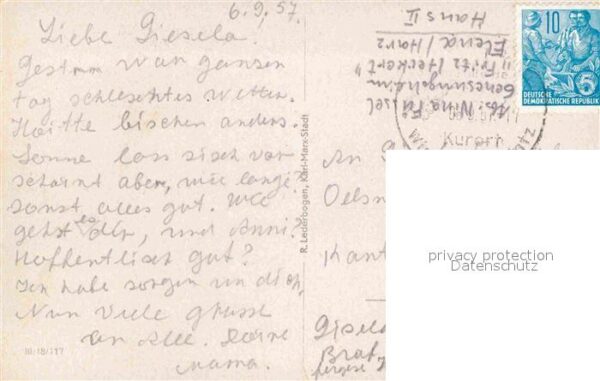 6.9.57.
Liebe Giesela.
Gestern war ganzen
tag schlechtes wetter.
Heitte bischen anders.
Sonne
aber, wie lange.
sonst alles gut. Wie
gehst es dir, und Anni?
Hoffentlisch gut?
Ich habe sorgen um dich,
Nun viele grüsse
an alle. Deine
Mama.
III/18/117
R. Lederbogen, Karl-Marx-Stadt
Abs. Nina
Genesungsheim
"Fritz Heckert"
Elend/Harz
Haus II
10
5
DEUTSCHE
DEMOKRATISCHE REPUBLIK
Kurort
An
Oelsn
Kant
Gisela
privacy protection
Datenschutz